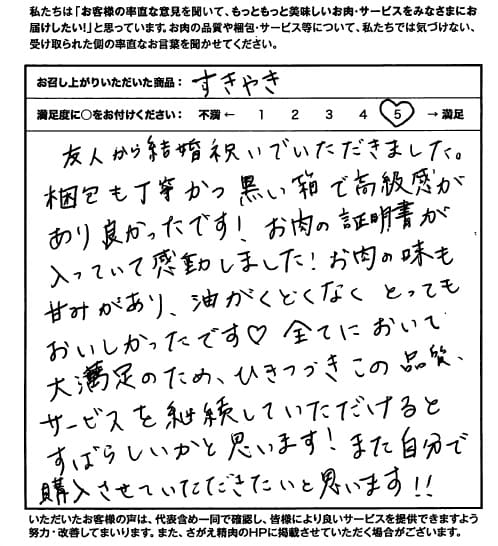 私たちは「お客様の率直な意見を聞いて、もっともっと美味しいお肉・サービスをみなさまにお
届けしたい!」と思っています。お肉の品質や梱包・サービス等について、私たちでは気づけない、
受け取られた側の率直なお言葉を聞かせてください。
お召し上がりいただいた商品: すきやき
満足度に○をお付けください: 不満 ← 1 2 3 4 5 → 満足
友人から結婚祝いでいただきました。
梱包も丁寧かつ黒い箱で高級感が
あり良かったです! お肉の証明書が
入っていて感動しました! お肉の味も
甘みがあり、油がくどくなくとっても
おいしかったです♡ 全てにおいて
大満足のため、ひきつづきこの品質、
サービスを継続していただけると
すばらしいかと思います! また自分で
購入させていただきたいと思います!!
いただいたお客様の声は、代表含め一同で確認し、皆様により良いサービスを提供できますよう
努力・改善してまいります。また、さがえ精肉のHPに掲載させていただく場合がございます。